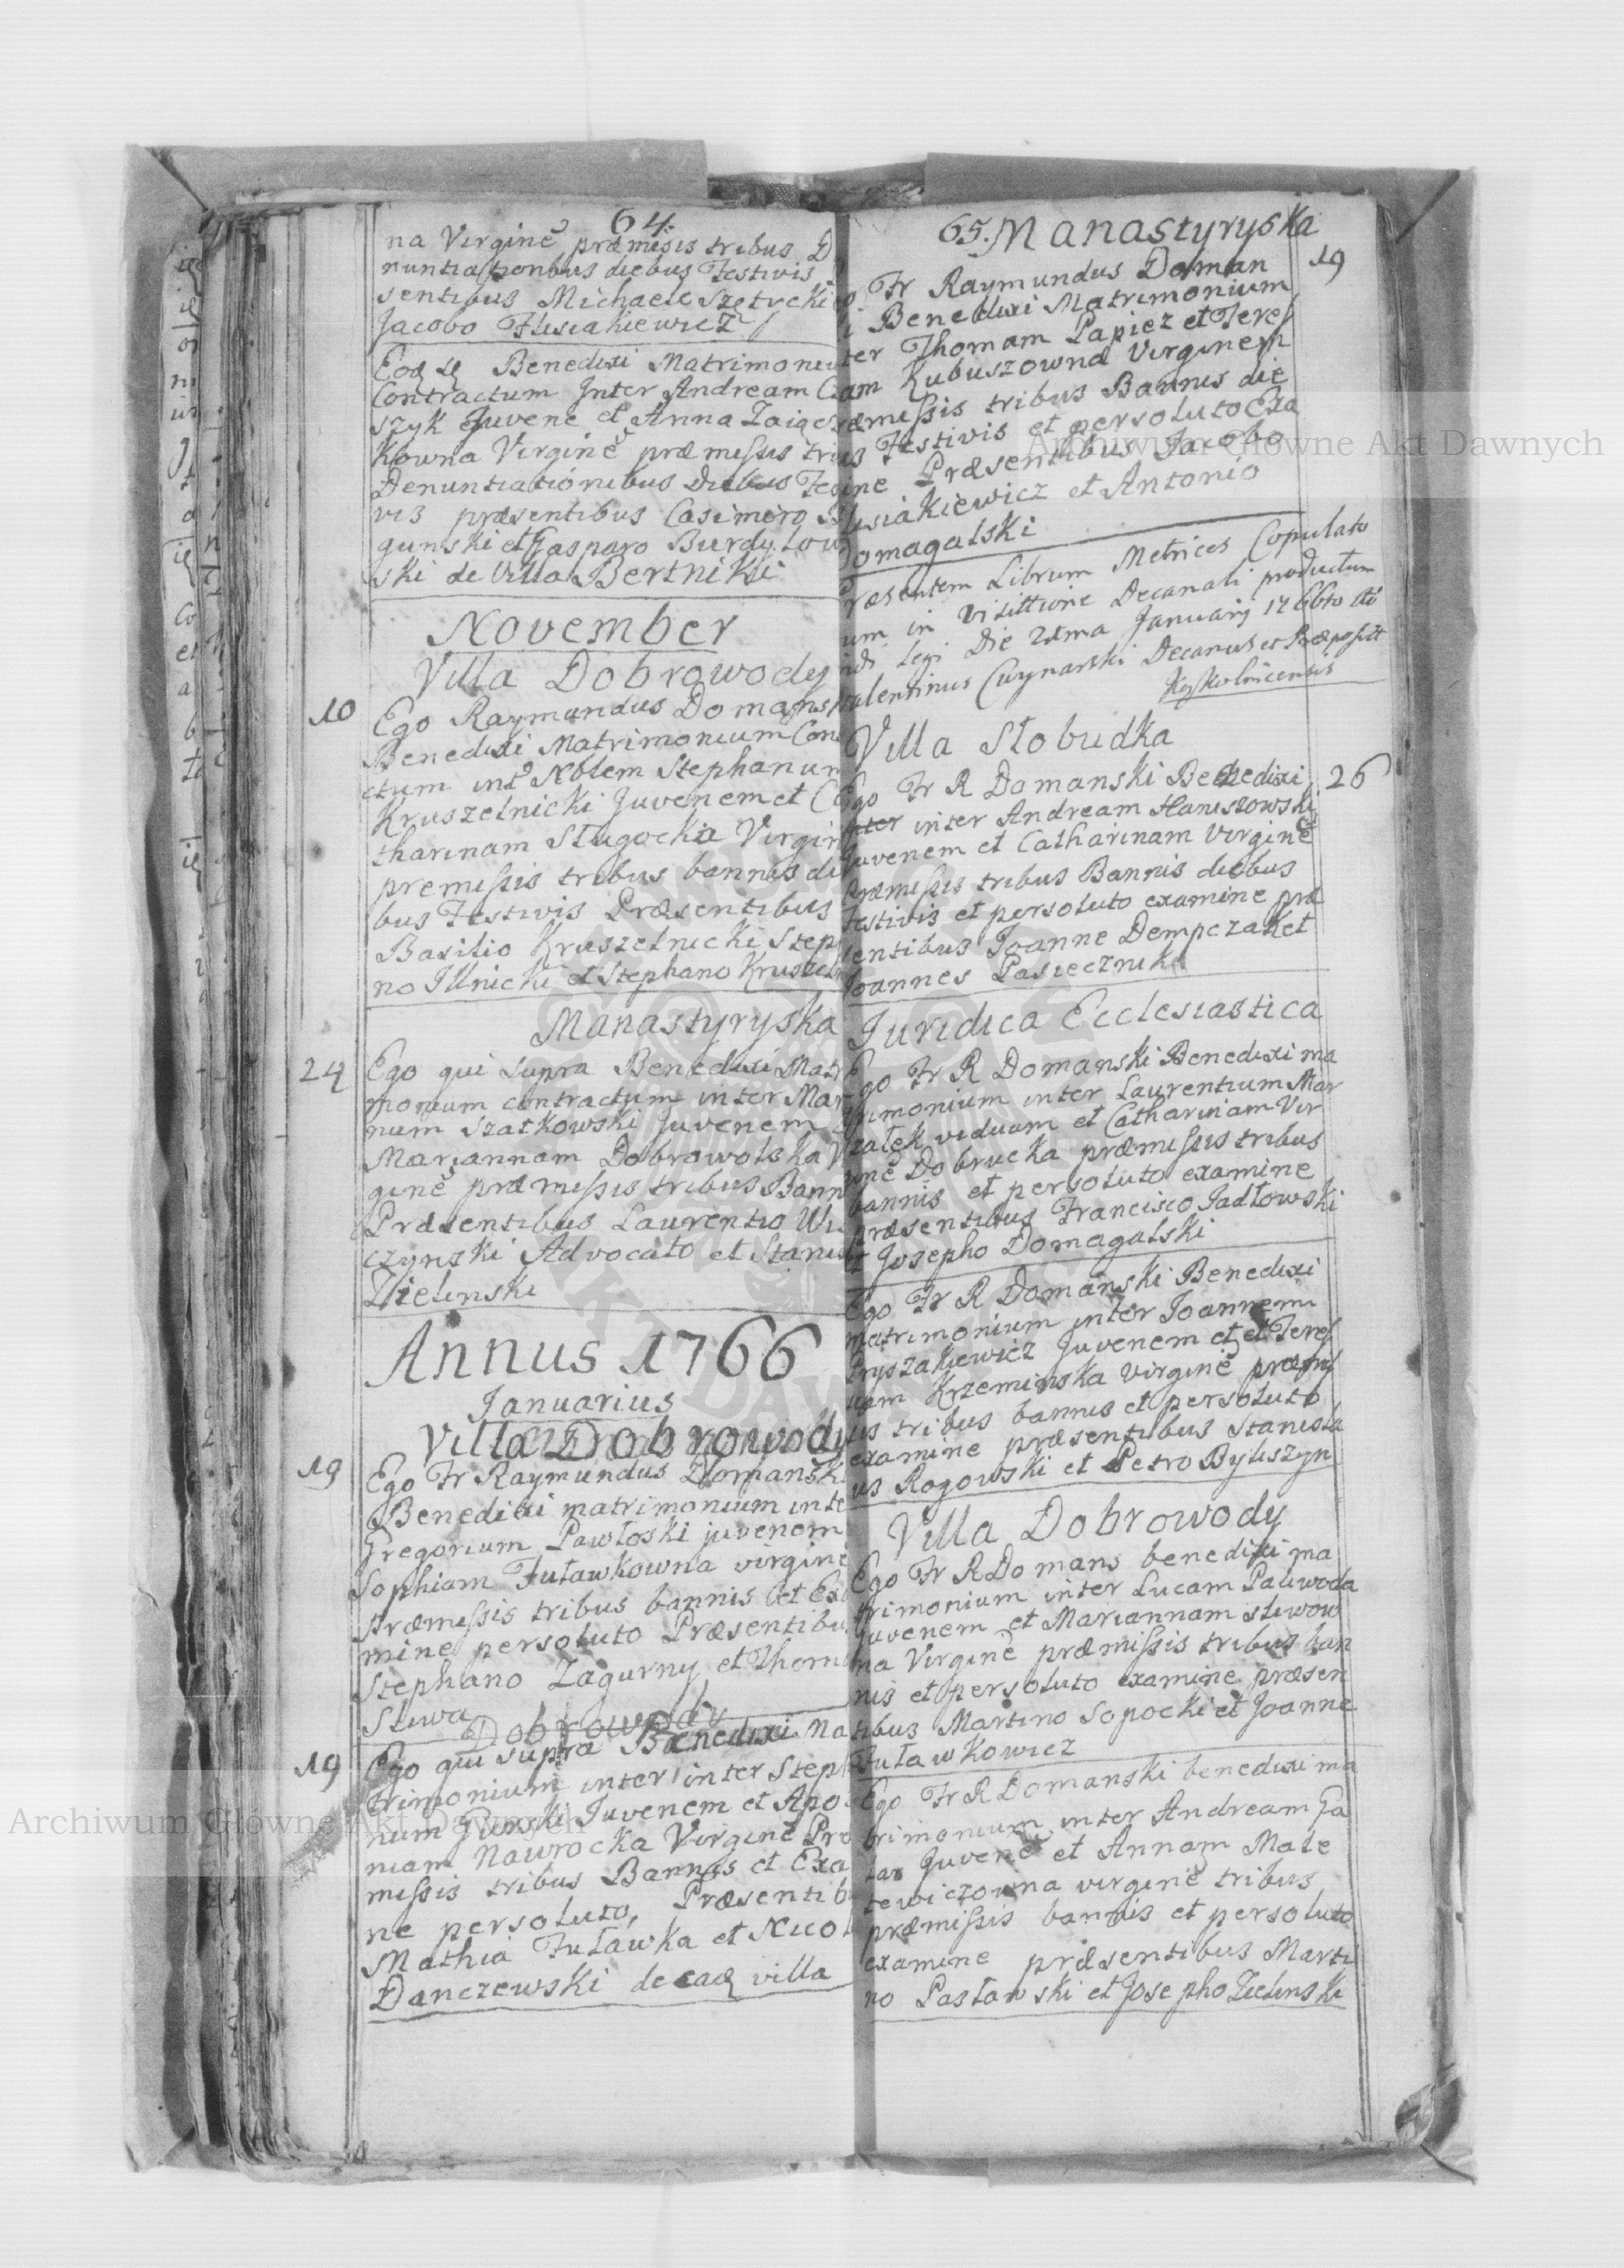 64.
na Virginē præmisis tribus D
nuntiationibus diebus Festivis
sentibus Michaele
Jacobo Flisiakiewicz
Benedixi Matrimoniu
Contractum Inter Andream C
szyk Juvene et Anna
kowna Virginē præmissis tri
Denuntiationibus Diebus Fes
vis præsentibus Casimiro
gunski et Gasparo Burdylow
ski de Villa Bertniki
November
Villa Dobrowody
10
Ego Raymundus Domans
Benedixi Matrimonium Con
ctum int Nblem Stephanum
Kruszelnicki Juvenem et C
tharinam Slugocka Virgin
premissis tribus bannis di
bus Festivis Præsentibus
Basilio Kruszelnicki Step
no Illnicki et Stephano Kruszeln
Manastyryska
24
Ego qui supra Benedixi Matr
monium contractum inter Mar
num Szatkowski Juvenem
Mariannam Dobrowolska V
ginē præmissis tribus Bann
Præsentibus Laurentio Wi
czynski Advocato et Stanis
Zielinski
Annus 1766
Januarius
Villa Dobrowody
19
Ego Fr Raymundus Domanski
Benedixi matrimonium inte
Gregorium Pawloski juvenem
Sophiam Futawkowna virginē
præmissis tribus bannis et Exa
mine persoluto Præsentibu
Stephano Zagurny et Thom
Sliwa
Dobrowody
19
Ego qui supra Benedixi Ma
trimonium inter inter Steph
num Gurski Juvenem et Apo
niam Nawrocka Virginē Præ
missis tribus Bannis et Exa
ne persoluto, Præsentib
Mathia Futawka et Nicol
Danczewski de eadē villa
65. Manastyryska
19
Fr Raymundus Doman
i Benedixi Matrimonium
ter Thomam Papiez et Teres
am Kubuszowna Virginem
ræmissis tribus Bannis die
us Festivis et persoluto Exa
ine Præsentibus Jacobo
lisiakiewicz et Antonio
Domagalski
Præsentem Librum Metrices Copulato
um in Visittione Decanali productum
idi legi Die January 1766to
Valentinus Cuynarski Decanus et Præposit
Villa Slobudka
26
Ego Fr R Domanski Benedixi
inter Andream Haniszowski
Juvenem et Catharinam Virginē
præmissis tribus Bannis diebus
festivis et persoluto examine præ
sentibus Joanne Dempczak et
Joannes Pasiecznik
Juridica Ecclesiastica
Ego Fr R Domanski Benedixi ma
trimonium inter Laurentium Mar
szalek viduum et Catharinam Vir
ginē Dobrucka præmissis tribus
bannis et persoluto examine
præsentibus Francisco Jadlowski
et Josepho Domagalski
Ego Fr R Domanski Benedixi
matrimonium inter Joannem
Pryszakiewicz Juvenem et et Teres
iam Krzeminska Virginē præmis
is tribus bannis et persoluto
examine præsentibus Stanisla
us Rogowski et Petro Byliszyn
Villa Dobrowody
Ego Fr R Domans benedixi ma
trimonium inter Lucam Paliwoda
juvenem et Mariannam sliwow
na Virginē præmissis tribus ban
nis et persoluto examine præsen
tibus Martino Sopocki et Joanne
Futawkowicz
Ego Fr R Domanski benedixi ma
trimonium inter Andream Ga
lar Juvenē et Annam Mate
tewiczowna virginē tribus
præmissis bannis et persoluto
examine præsentibus Marti
no Pastawski et Josepho Zielinski
Archiwum Główne Akt Dawnych
Archiwum Główne Akt Dawnych